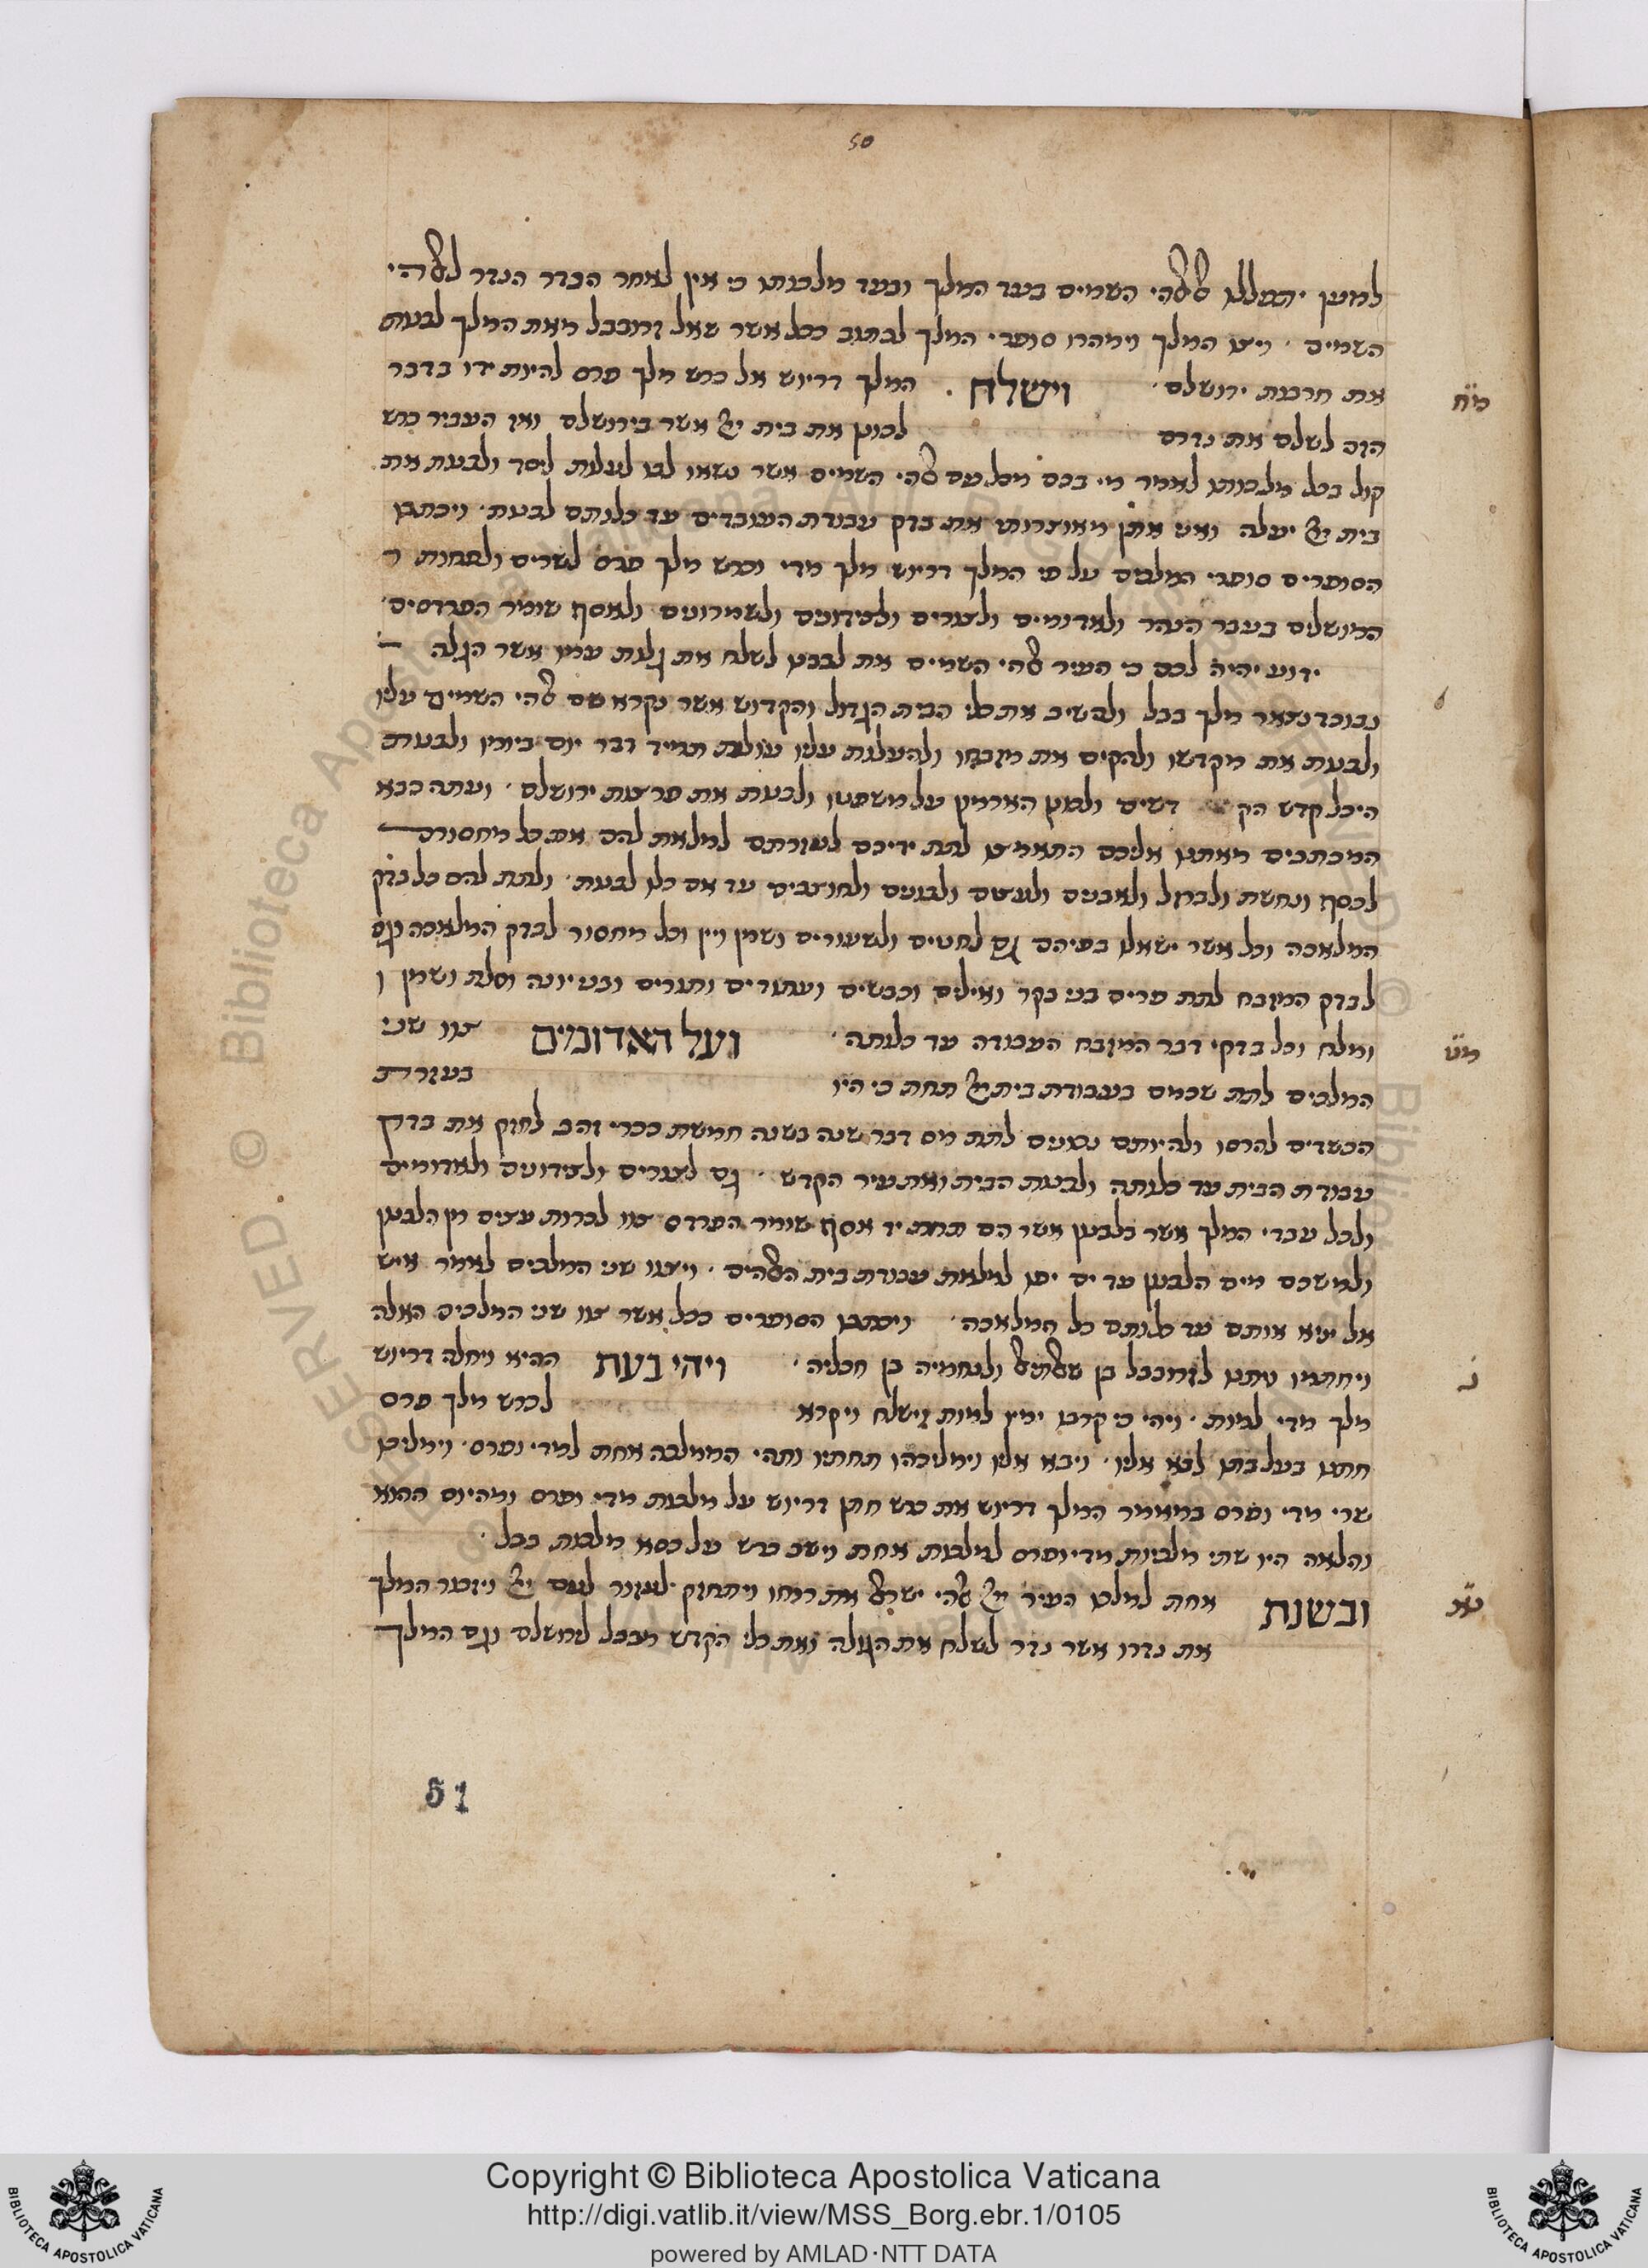 50
למען יתפללו לאלהי השמים בעד המלך ובעד מלכותו כי אין לאחר הנדר הנדר לאלהי
השמים ׳ ויצו המלך וימהרו סופרי המלך לכתוב ככל אשר שאל זרובבל מאת המלך לבנות
את חרבות ירושלם ׳ וישלח ׳ המלך דריוש אל כרש מלך פרס להיות ידו בדבר
מ״ח
הזה לשלם את נדרם לכונן את בית יי אשר בירושלם ואז העביר כרש
קול בכל מלכותו לאמר מי בכם מכל עם אלהי השמים אשר נשאו לבו לעלות ליסד ולבנות את
בית יי יעלה ואני אתן מאוצרותי את בדק עבודת העובדים עד כלותם לבנות ׳ ויכתבו
הסופרים סופרי המלכים על פי המלך דריוש מלך מדי וכרש מלך פרס לשרים ולפחות
המושלים בעבר הנהר ולאדומים ולצורים ולצידונים ולשמרונים ולאסף שומר הפרדסים ׳
ידוע יהיה לכם כי העיר אלהי השמים את לבבנו לשלח את גלות עמו אשר הגלה
נבוכדנצאר מלך בבל ולהשיב את כלי הבית הגדול והקדוש אשר נקרא שם אלהי השמים עליו
ולבנות את מקדשו ולהקים את מזבחו ולהעלות עליו עולות תמיד דבר יום ביומו ולבנות
היכל קדש הק דשים ולכונן הארמון על משפטו ולבנות את פרצות ירושלם ׳ ועתה כבא
המכתבים מאתנו אליכם התאמצו לתת ידיכם לעזרתם למלאת להם את כל מחסורם
לכסף ונחשת ולברזל ולאבנים ולעצים ולבונים ולחוצבים עד אם כלו לבנות ׳ ולתת להם כל בדק
המלאכה וכל אשר ישאלו בפיהם גם לחטים ולשעורים ושמן ויין וכל מחסור לבדק המלאכה וגם
לבדק המזבח לתת פרים בני בקר ואילים וכבשים ועתודים ותורים ובני יונה וסלת ושמן
ומלח וכל בדקי דבר המזבח העבודה עד כלותה ׳ ועל האדומים צוו שני
מ״ט
המלכים לתת שכמם בעבודת בית יי תחת כי היו בעזרת
הכשדים להרסו ולהיותם נכונים לתת מס דבר שנה בשנה חמשת ככרי זהב לחזק את בדק
עבודת הבית עד כלותה ולבנות הבית ואת עיר הקדש ׳ גם לצורים ולצידונים ולאדומים
ולכל עבדי המלך אשר בלבנון אשר הם תחת יד אסף שומר הפרדס צוו לכרות עצים מן הלבנון
ולמשכם מים הלבנון עד ים יפו למלאת עבודת בית האלהים ׳ ויצוו שני המלכים לאמר איש
אל יניא אותם עד כלותם כל המלאכה ׳ ויכתבו הסופרים ככל אשר צוו שני המלכים האלה
ויחתמו ויתנו לזרובבל בן שאלתיאל ולנחמיה בן חכליה ׳ ויהי בעת ההיא ויחלה דריוש
נ
מלך מדי למות ׳ ויהי כי קרבו ימיו למות וישלח ויקרא לכרש מלך פרס
חתנו בעל בתו לבא אליו ׳ ויבא אליו וימליכהו תחתיו ותהי הממלכה אחת למדי ופרס ׳ וימליכו
שרי מדי ופרס במאמר המלך דריוש את כרש חתן דריוש על מלכות מדי ופרס ומהיום ההוא
והלאה היו שתי מלכיות מדי ופרס למלכות אחת וישב כרש על כסא מלכות בבל ׳
ובשנת אחת למלכו העיר יי אלהי ישראל את רוחו ויתחזק לעזור לעם יי ויזכור המלך
נ״א
את נדרו אשר נדר לשלח את הגולה ואת כלי הקדש מבבל לירושלם וגם המלך
51
Copyright © Biblioteca Apostolica Vaticana
http://digi.vatlib.it/view/MSS_Borg.ebr.1/0105
powered by AMLAD·NTT DATA